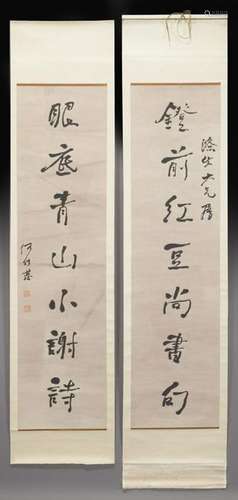 滌生大兄屬
鐙前紅豆尚書句
眼底青山小謝詩
何紹基